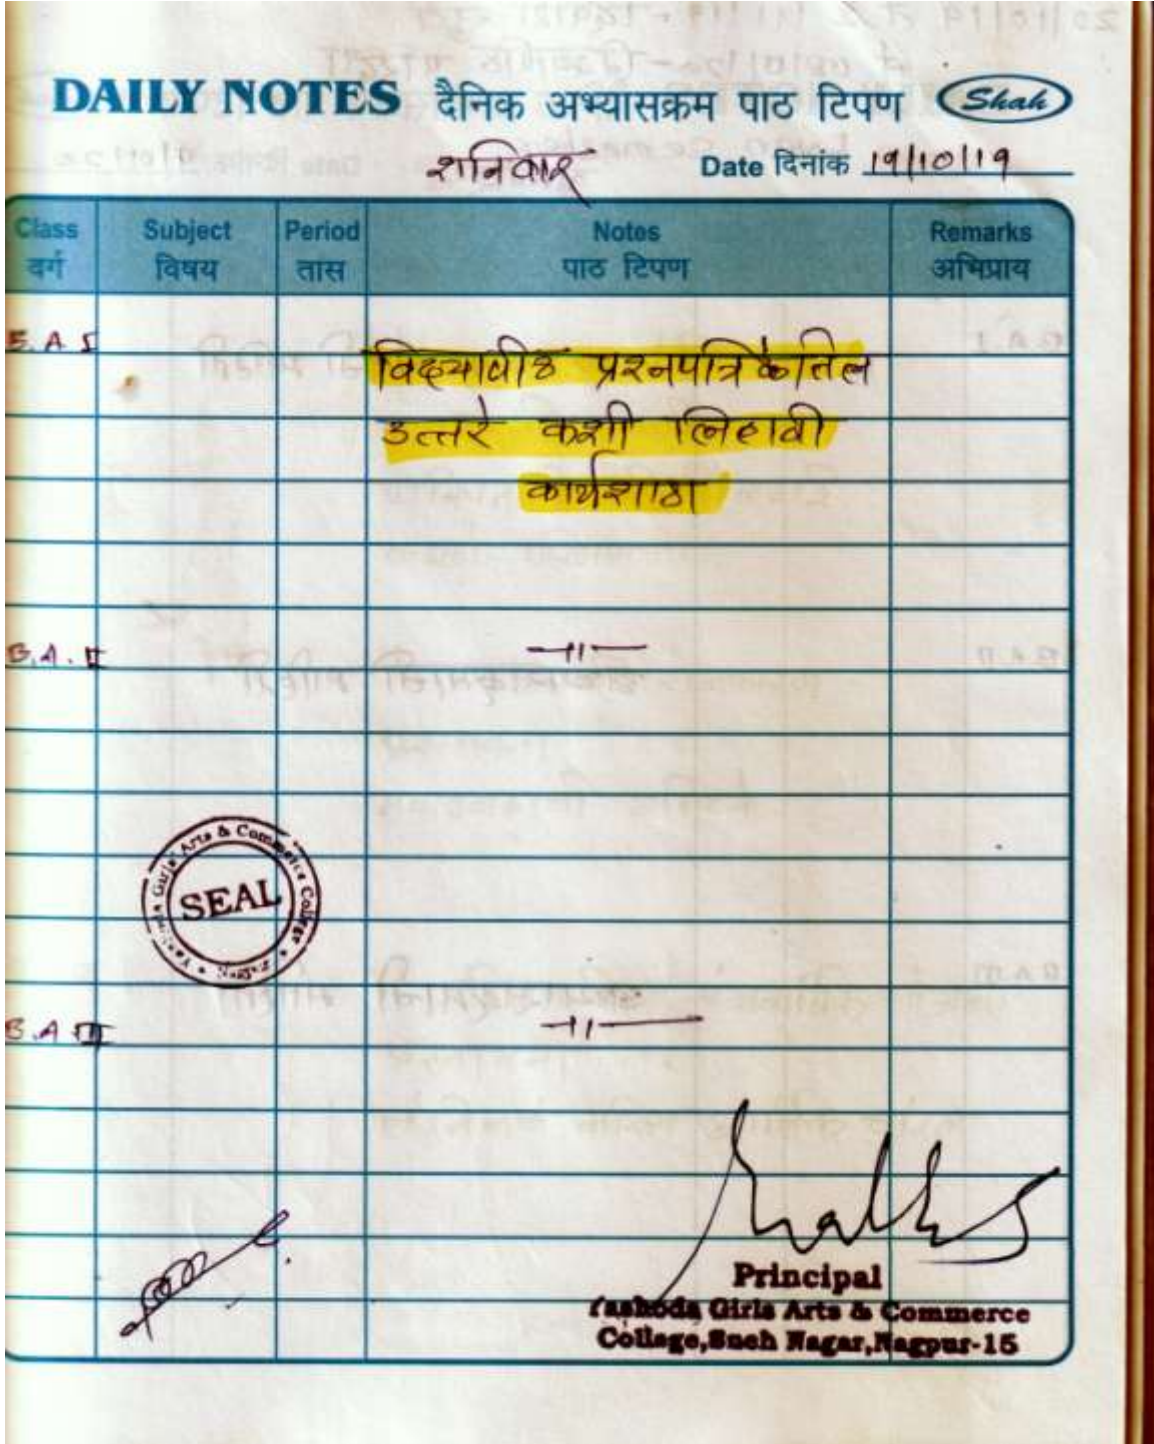 DAILY NOTES दैनिक अभ्यासक्रम पाठ टिपण Shah
शनिवार Date दिनांक 19/10/19
Class Subject Period Notes Remarks
वर्ग विषय तास पाठ टिपण अभिप्राय
B.A I
विद्यापीठ प्रश्नपत्रिकेतिल
उत्तरे कशी लिहावी
कार्यशाळा
B.A. II —11—
Yashoda Girls Arts & Commerce College * Nagpur *
SEAL
B.A III —11—
Principal
Yashoda Girls Arts & Commerce
College,Sneh Nagar,Nagpur-15